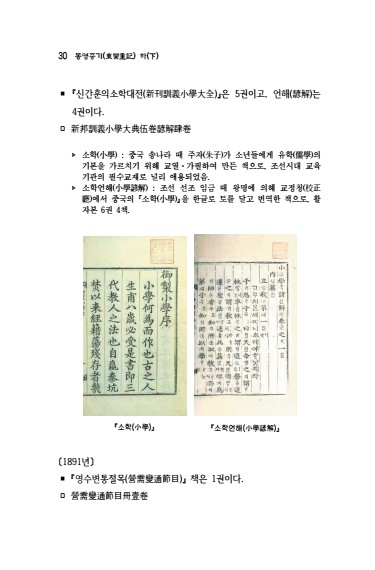 30 동영중기(東營重記) 하(下)
▪ 『신간훈의소학대전(新刊訓義小學大全)』은 5권이고, 언해(諺解)는
4권이다.
□ 新邦訓義小學大典伍卷諺解肆卷
▹ 소학(小學) : 중국 송나라 때 주자(朱子)가 소년들에게 유학(儒學)의
기본을 가르치기 위해 교열·가필하여 만든 책으로, 조선시대 교육
기관의 필수교재로 널리 애용되었음.
▹ 소학언해(小學諺解) : 조선 선조 임금 때 왕명에 의해 교정청(校正
廳)에서 중국의 『소학(小學)』을 한글로 토를 달고 번역한 책으로, 활
자본 6권 4책.
御製小學序
小學何爲而作也古之人
生甫八歲必受是書即三
代教人之法也自嬴秦坑
焚以來經籍蕩殘存者幾
『소학(小學)』
『소학언해(小學諺解)』
〔1891년〕
▪ 『영수변통절목(營需變通節目)』 책은 1권이다.
□ 營需變通節目冊壹卷